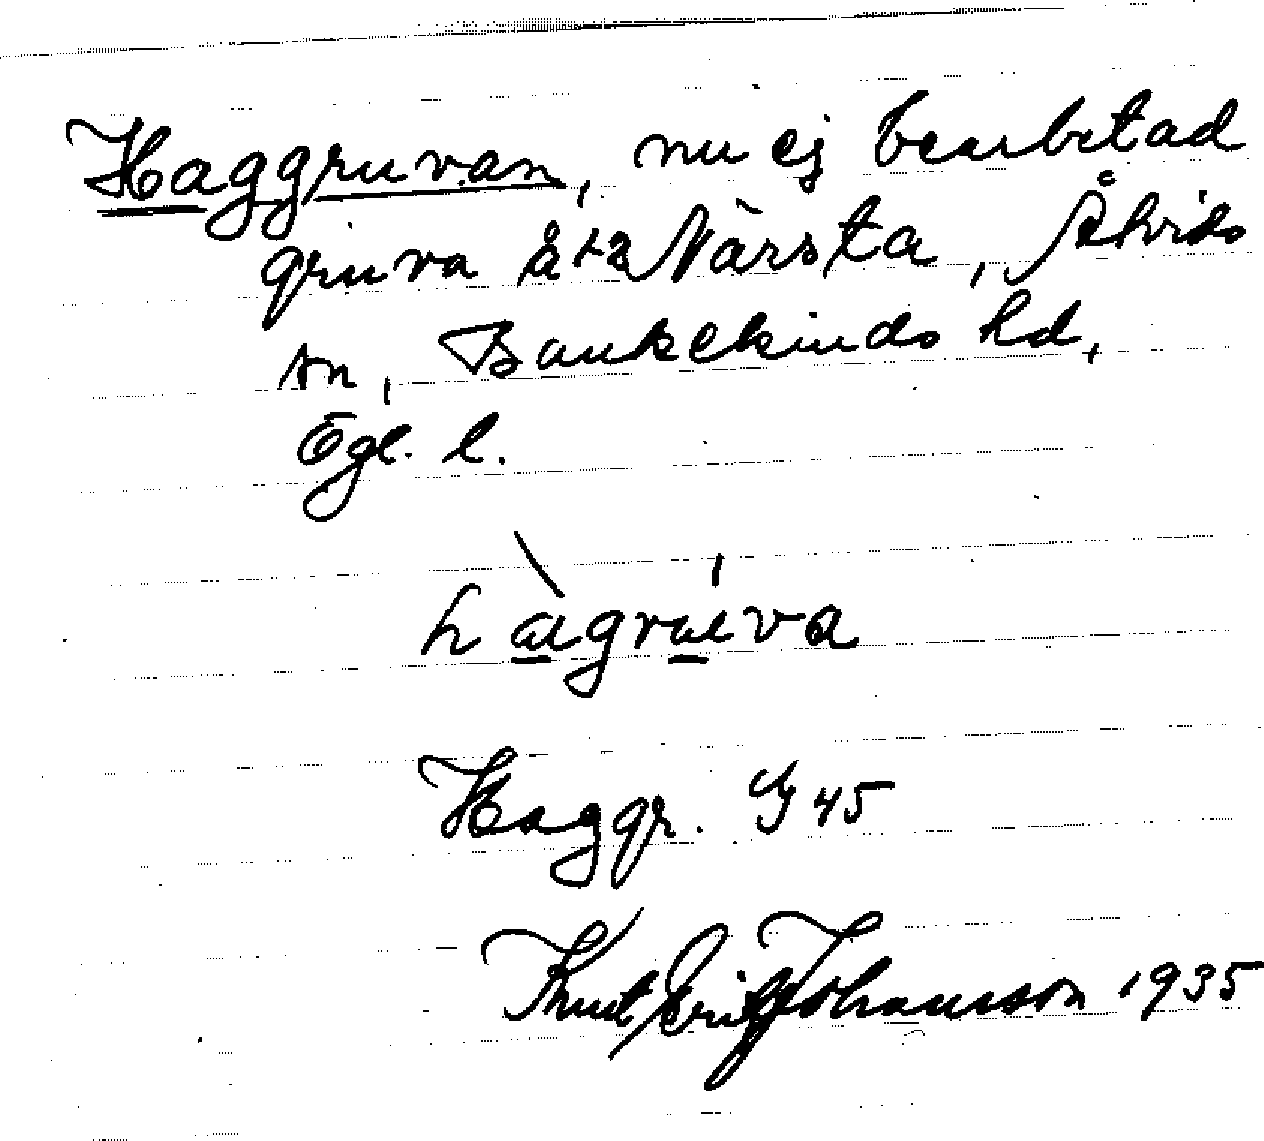 Haggruvan, nu ej bearbetad
gruva å +2 Närsta, Åtvids
sn, Bankekinds hd,
Ögl. l.
hàgrúva
Haggr. G 45
Knut Erik Johansson 1935